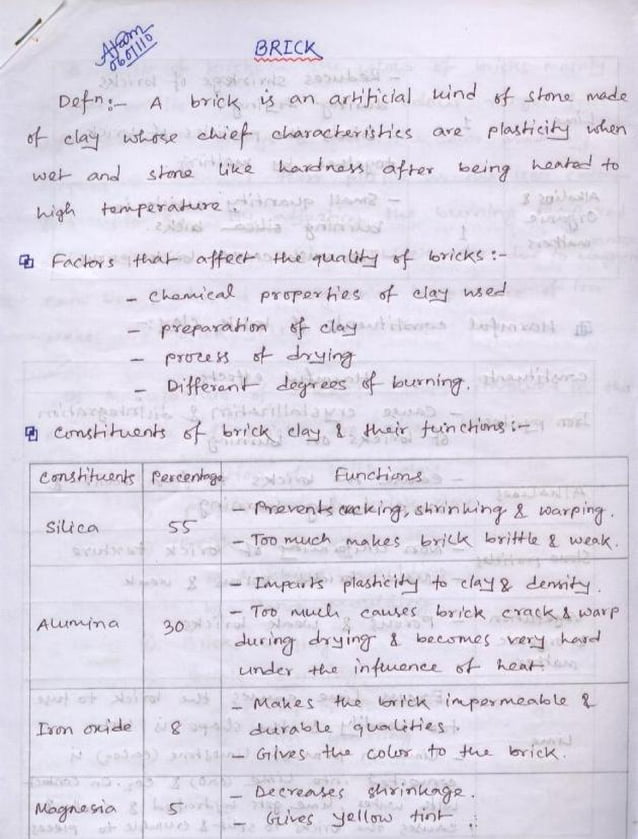 Alam
0601110
BRICK
Defn:- A brick is an artificial kind of stone made
of clay whose chief characteristics are plasticity when
wet and stone like hardness after being heated to
high temperature.
Factors that affect the quality of bricks :-
- Chemical properties of clay used
- preparation of clay
- process of drying
- Different degrees of burning.
Constituents of brick clay & their functions :-
Constituents Percentage Functions
Silica 55 - Prevents cracking, shrinking & warping.
- Too much makes brick brittle & weak.
Alumina 30 - Imparts plasticity to clay & density.
- Too much causes brick crack & warp
during drying & becomes very hard
under the influence of heat.
Iron oxide 8 - Makes the brick impermeable &
durable qualities.
- Gives the color to the brick.
Magnesia 5 - Decreases shrinkage.
- Gives yellow tint.